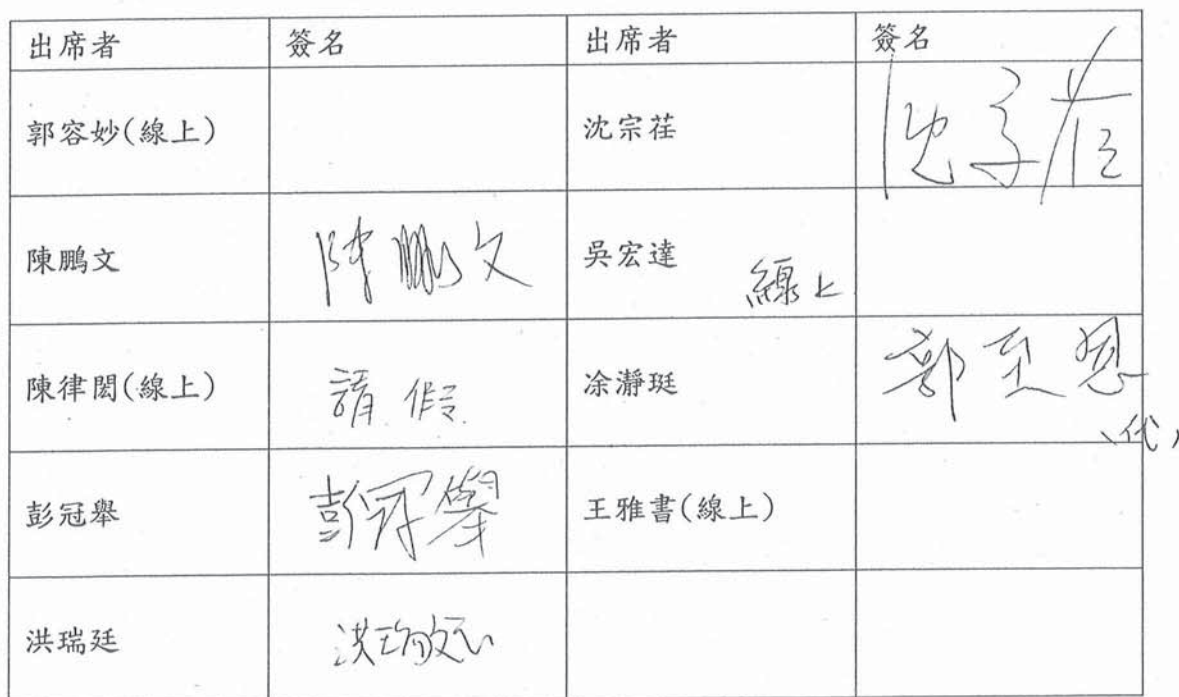 出席者 簽名 出席者 簽名
郭容妙(線上) 沈宗荏 沈子荏
陳鵬文 陳鵬文 吳宏達 線上
陳律閎(線上) 請假 凃瀞珽 鄭至恩
(代)
彭冠舉 彭冠舉 王雅書(線上)
洪瑞廷